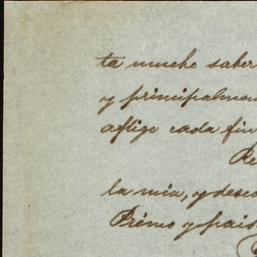 ta mucho saber
y principalmen
aflige cada fin
Re
la mia, y desea
Primo y pais